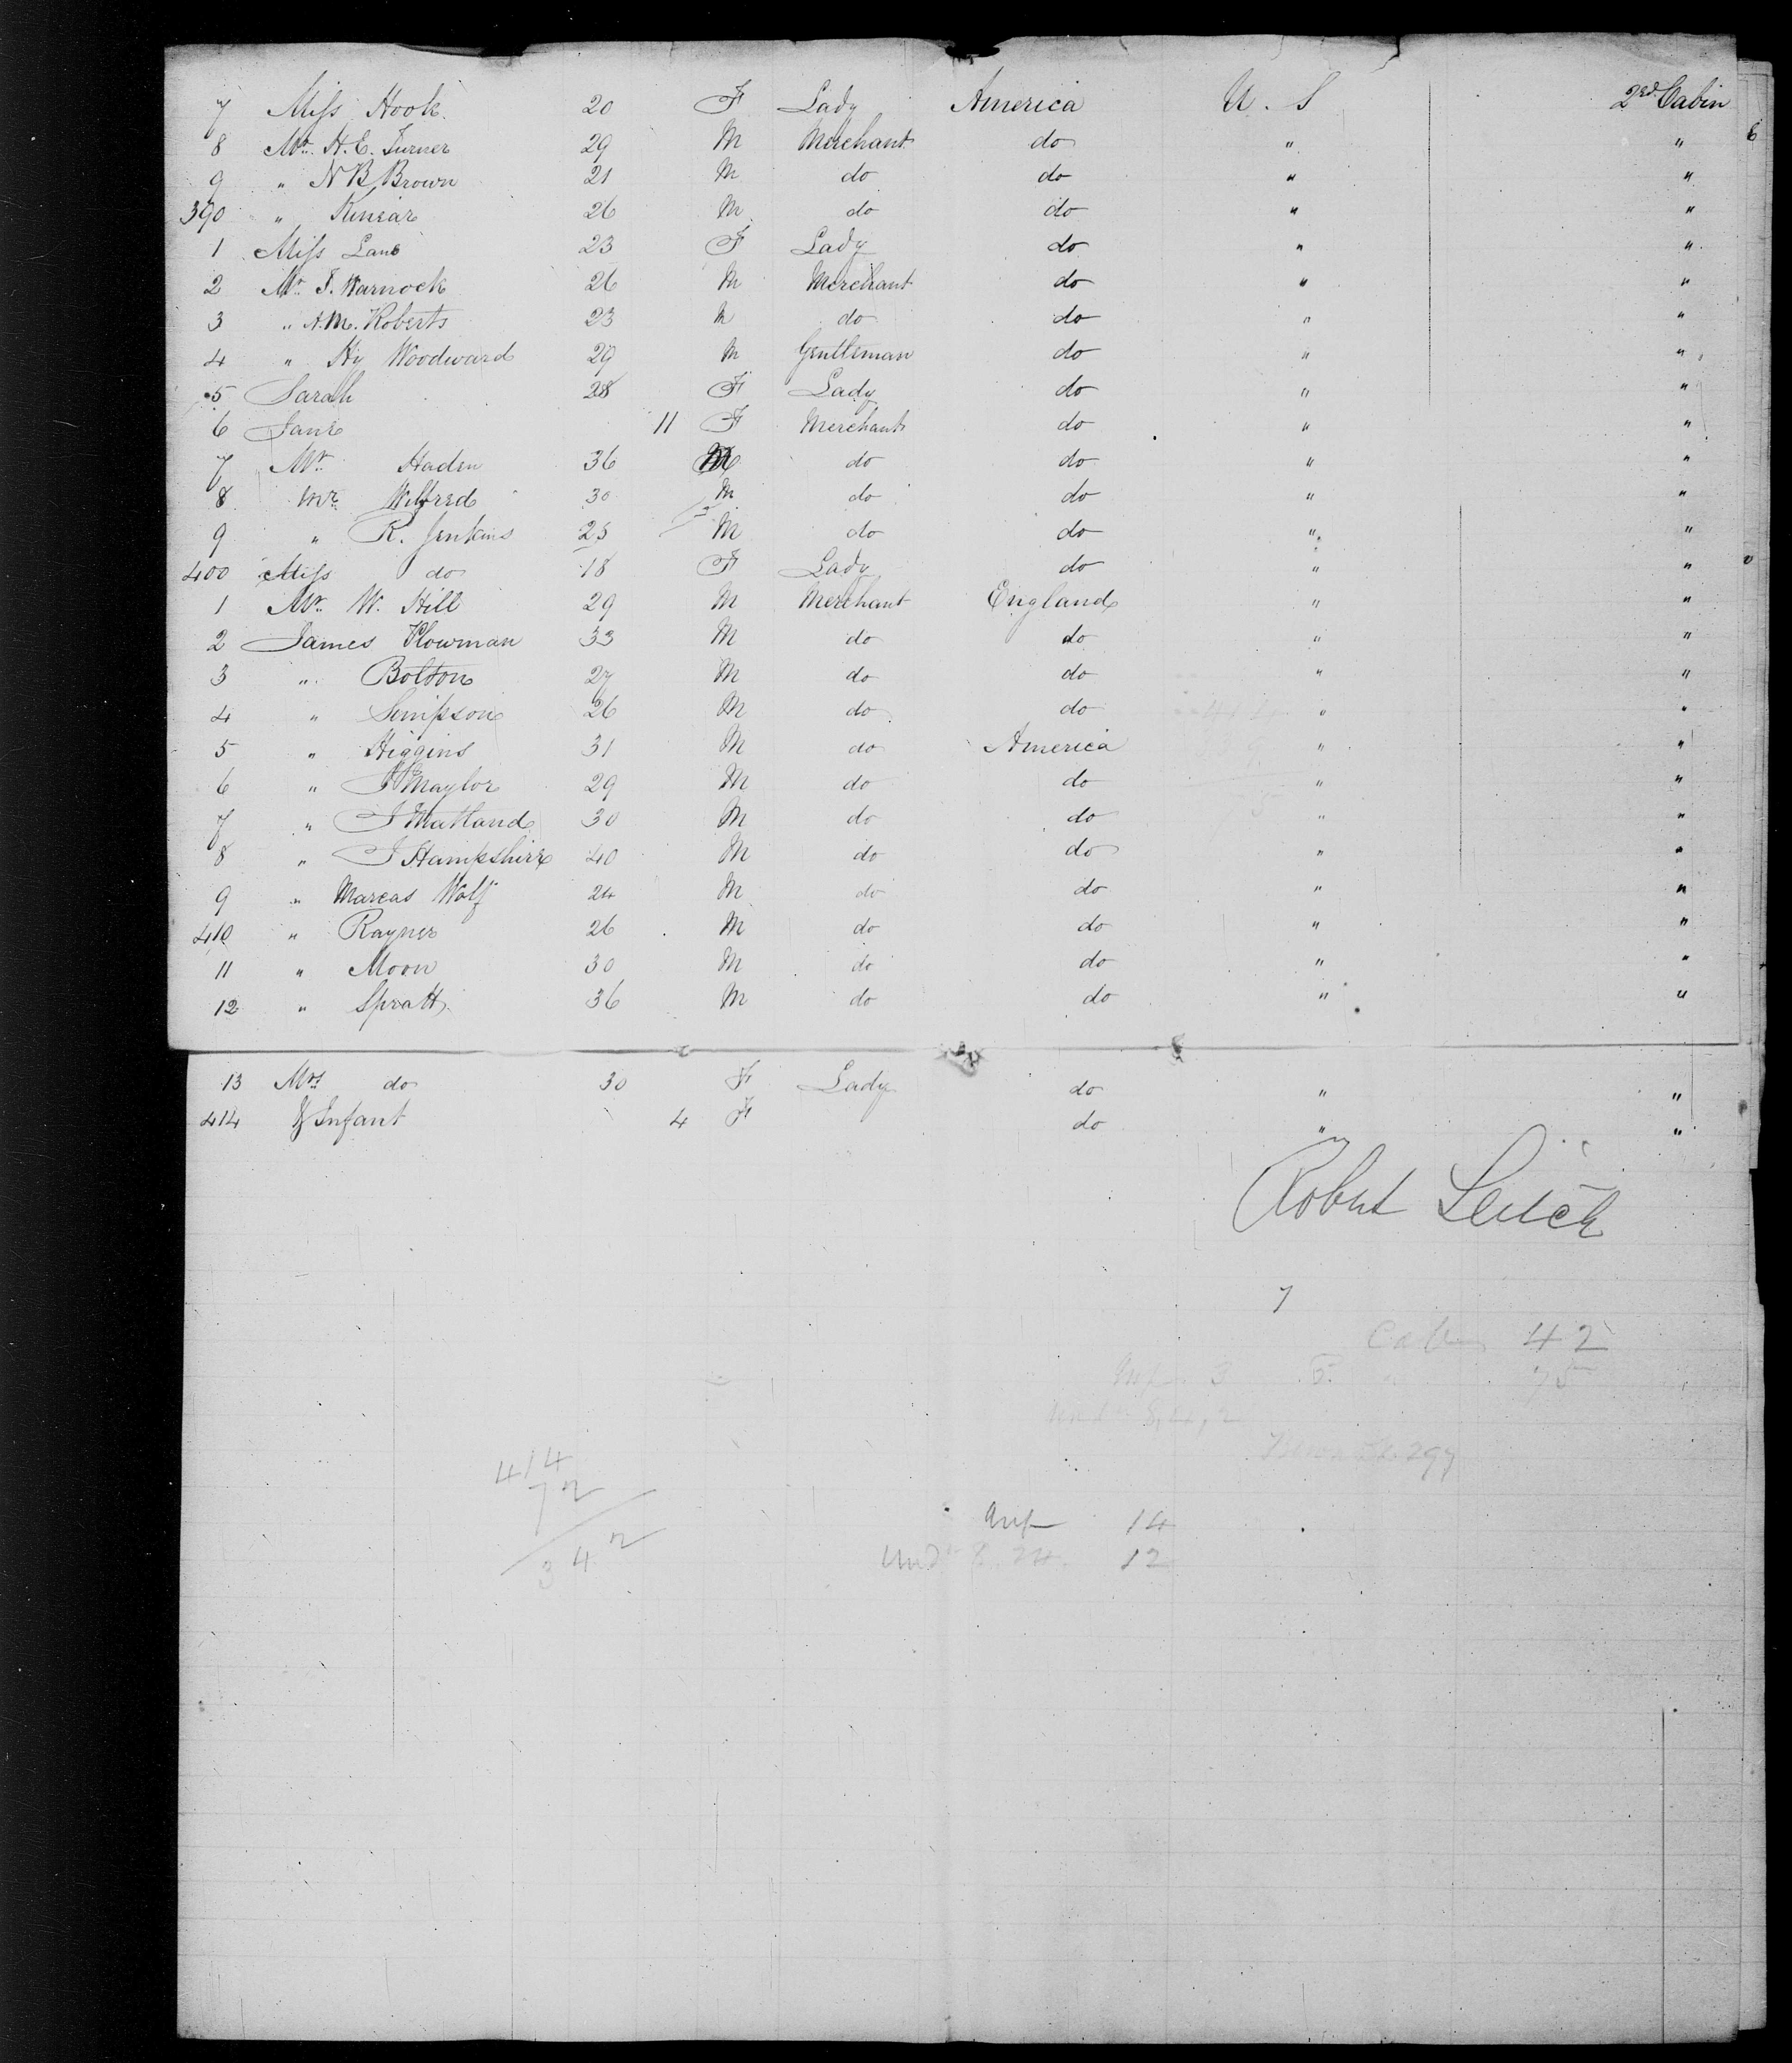 7 Miss Hook 20 F Lady America U. S 2nd Cabin
8 Mr. H. E. Turner 29 M Merchant do " "
9 " N B Brown 21 M do do " "
390 " Kinear 26 M do do " "
1 Miss Lane 23 F Lady do " "
2 Mr J. Warnock 26 M Merchant do " "
3 " A. M. Roberts 23 M do do " "
4 " Hy Woodward 29 M Gentleman do " "
5 Sarah 28 F Lady do " "
6 Jane 11 F Merchant do " "
7 Mr Haden 36 M do do " "
8 Mr Wilfred 30 M do do " "
9 " R. Jenkins 25 M do do " "
400 Miss do 18 F Lady do " "
1 Mr. W. Hill 29 M Merchant England " "
2 James Plowman 33 M do do " "
3 " Bolton 27 M do do " "
4 " Simpson 26 M do do " "
5 " Higgins 31 M do America " "
6 " Maylor 29 M do do " "
7 " J Matland 30 M do do " "
8 " J Hampshire 40 M do do " "
9 " Marcas Wolf 24 M do do " "
410 " Rayner 26 M do do " "
11 " Moon 30 M do do " "
12 " Spratt 36 M do do " "
13 Mrs do 30 F Lady do " "
414 & Infant 4 F do " "
Robert Leitch
7
Cabin 42
Inf. 3 75
297
414
72
342
Inf 14
Und 12